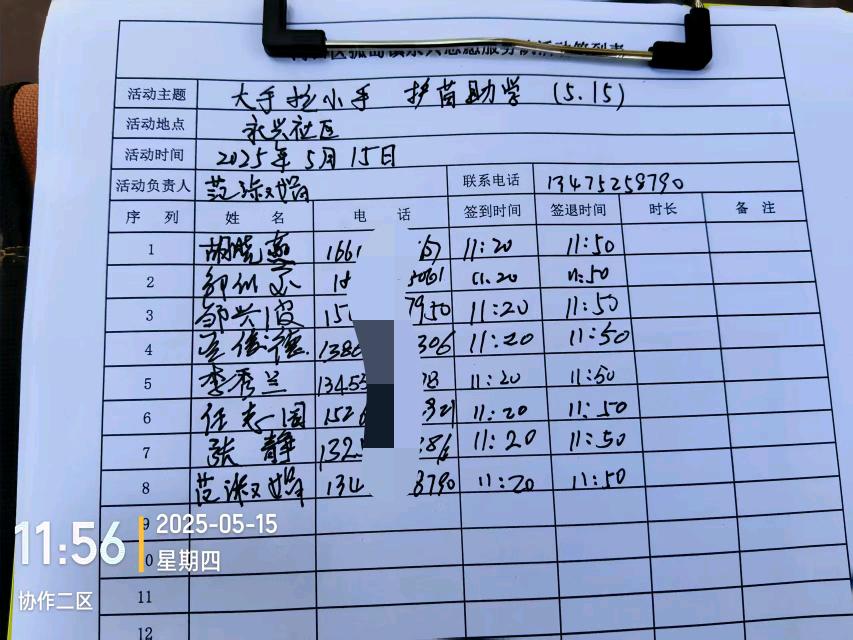 活动主题 大手拉小手 护苗助学 (5.15)
活动地点 永兴社区
活动时间 2025年5月15日
活动负责人 范淑娟 联系电话 13475258790
序 列 姓 名 电 话 签到时间 签退时间 时长 备 注
1 胡晓燕 1661 67 11:20 11:50
2 5061 11.20 11:50
3 邹兴波 150 7950 11:20 11:50
4 1386 306 11:20 11:50
5 李秀兰 13453 78 11:20 11:50
6 任志国 1526 821 11:20 11:50
7 张静 132 86 11:20 11:50
8 134 8790 11:20 11:50
9
11
12
11:56 2025-05-15
星期四
协作二区